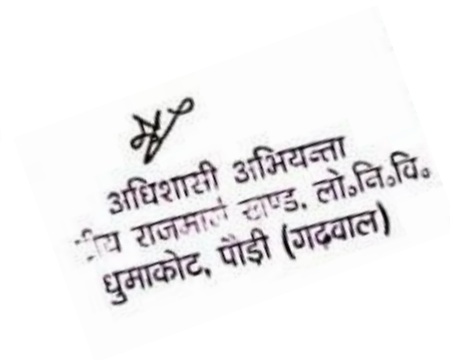 अधिशासी अभियन्ता
ीय राजमार्ग खण्ड, लो॰नि॰वि॰
धुमाकोट, पौड़ी (गढ़वाल)